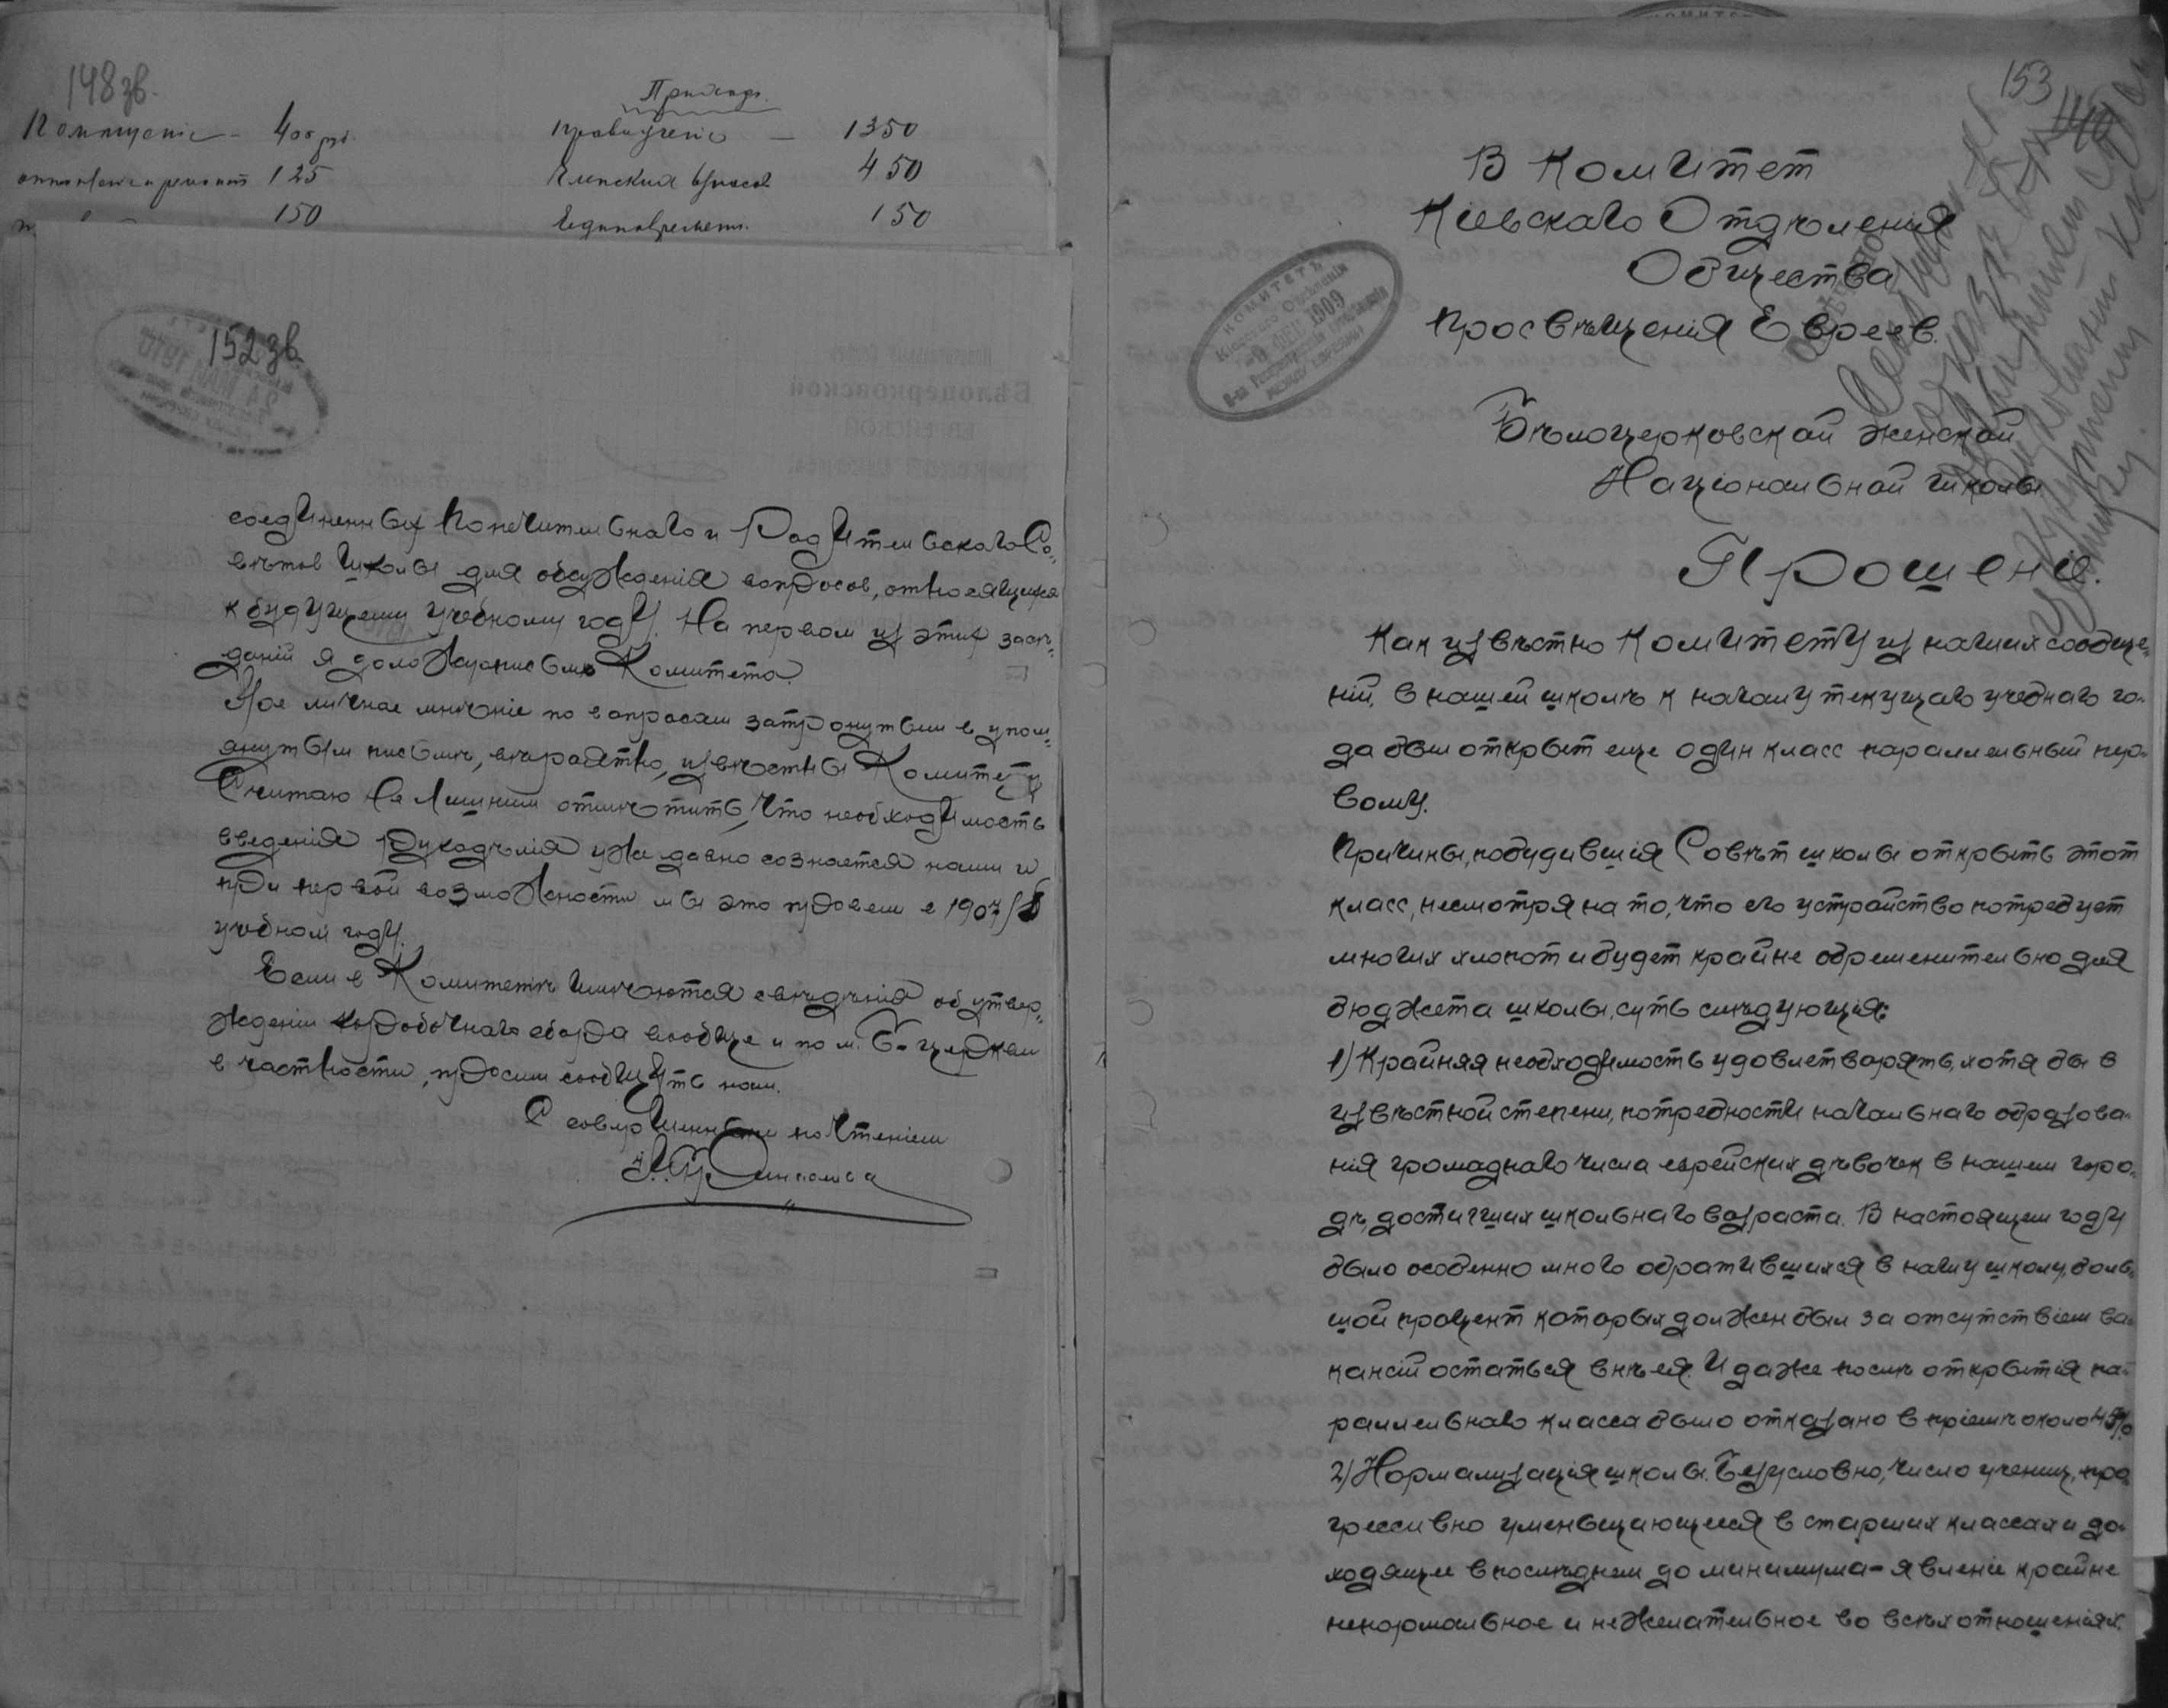 148 зв.
Приход.
Помещеніе — 400 руб.
Правоученіе — 1350
отопленіе и ремонт 125
Членских взносов 450
150
Единоврем. 150
152 зв.
соединенных Попечительнаго и Родительскаго Со-
вѣтов школы для обсужденія вопросов, относящихся
к будущему учебному году. На первом из этих засѣ-
даній я доложу письмо Комитета.
Мое личное мнѣніе по вопросам затронутым в упом-
янутым письмѣ, вѣроятно, извѣстны Комитету
Считаю не лишним отмѣтить, что необходимость
введенія рукодѣлія уже давно сознается нами и
при первой возможности мы это проведем в 1907/8
учебном году.
Если в Комитетѣ имѣются свѣдѣнія об утвер-
жденіи коробочнаго сбора вообще и по м. Б-церкви
в частности, просим сообщить нам.
С совершенным почтеніем
153
В Комитет
Кіевскаго Отдѣленія
Общества
Просвѣщенія Евреев.
КОМИТЕТЪ
Кіевскаго Отдѣленія
9 ДЕК 1909
О-ва Распространенія Просвѣщенія
МЕЖДУ ЕВРЕЯМИ
Бѣлоцерковской женской
Національной школы
Прошеніе.
Как извѣстно Комитету из наших сообще-
ній, в нашей школѣ к началу текущаго учебнаго го-
да был открыт еще один класс параллельный пер-
вому.
Причины, побудившія Совѣт школы открыть этот
класс, несмотря на то, что его устройство потребует
многих хлопот и будет крайне обременительно для
бюджета школы, суть слѣдующія:
1) Крайняя необходимость удовлетворять, хотя бы в
извѣстной степени, потребности начальнаго образова-
нія громаднаго числа еврейских дѣвочек в нашем горо-
дѣ, достигших школьнаго возраста. В настоящем году
было особенно много обратившихся в нашу школу, боль-
шой процент которых должен был за отсутствіем ва-
кансій остаться внѣ ея. И даже послѣ открытія па-
раллельнаго класса было отказано в пріемѣ около 45%
2) Нормализація школы. Безусловно, число учениц, про-
грессивно уменьшающееся в старших классах и до-
ходящее в послѣднем до минимума - явленіе крайне
ненормальное и нежелательное во всѣх отношеніях.